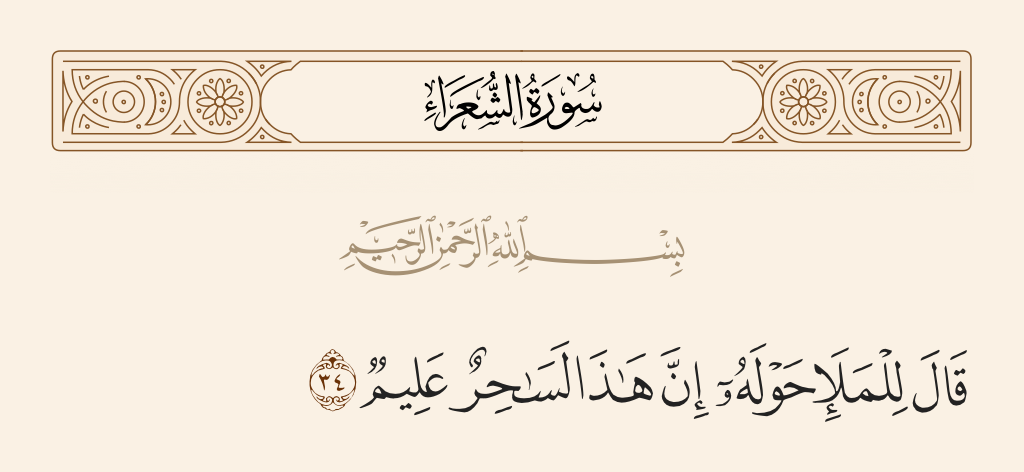 سُورَةُ الشُّعَرَاءِ
بِسْمِ ٱللَّهِ ٱلرَّحْمَٰنِ ٱلرَّحِيمِ
قَالَ لِلْمَلَإِ حَوْلَهُۥٓ إِنَّ هَٰذَا لَسَٰحِرٌ عَلِيمٌ ٣٤